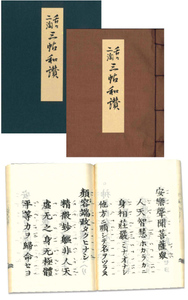 舌々
二淘
三帖和讃
舌々
二淘
三帖和讃
安樂聲聞菩薩衆
人天智慧ホカラカニ
身相莊嚴ミナオナシ
他方ニ順シテ名ヲツラヌ
顔容端政タクヒナシ
精微妙軀非人天
虚无之身无極體
平等力ヲ歸命セヨ